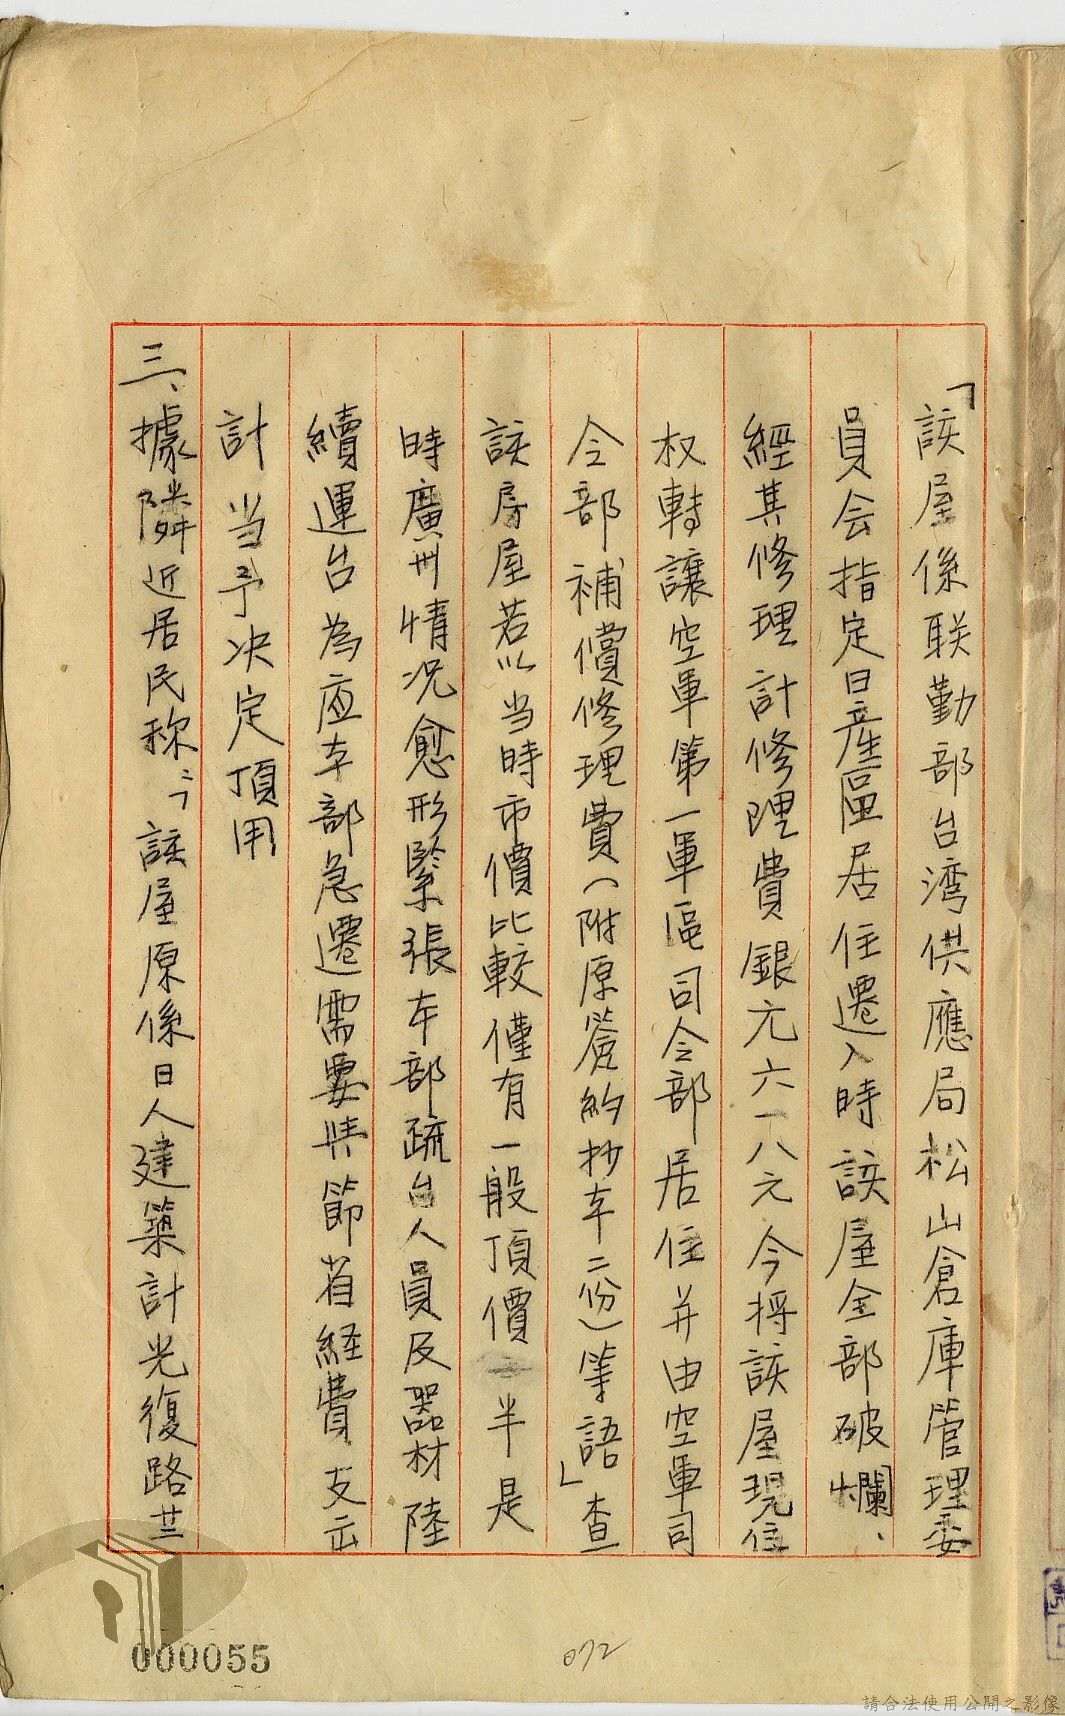 「該屋係联勤部台湾供應局松山倉庫管理委
員会指定日產區居住遷入時該屋全部破爛、
經其修理計修理費銀元六一八元今将該屋現住
权轉讓空軍第一軍區司令部居住并由空軍司
令部補償修理費(附原簽約抄本二份)等語」查
該房屋若以当時市價比較僅有一般頂價一半是
時廣州情况愈形緊張本部疏台人員及器材陸
續運台為应本部急遷需要与節省経費支出
計当予决定頂用
三、據隣近居民称:「該屋原係日人建築計光復路廿三
000055
072
請合法使用公開之影像